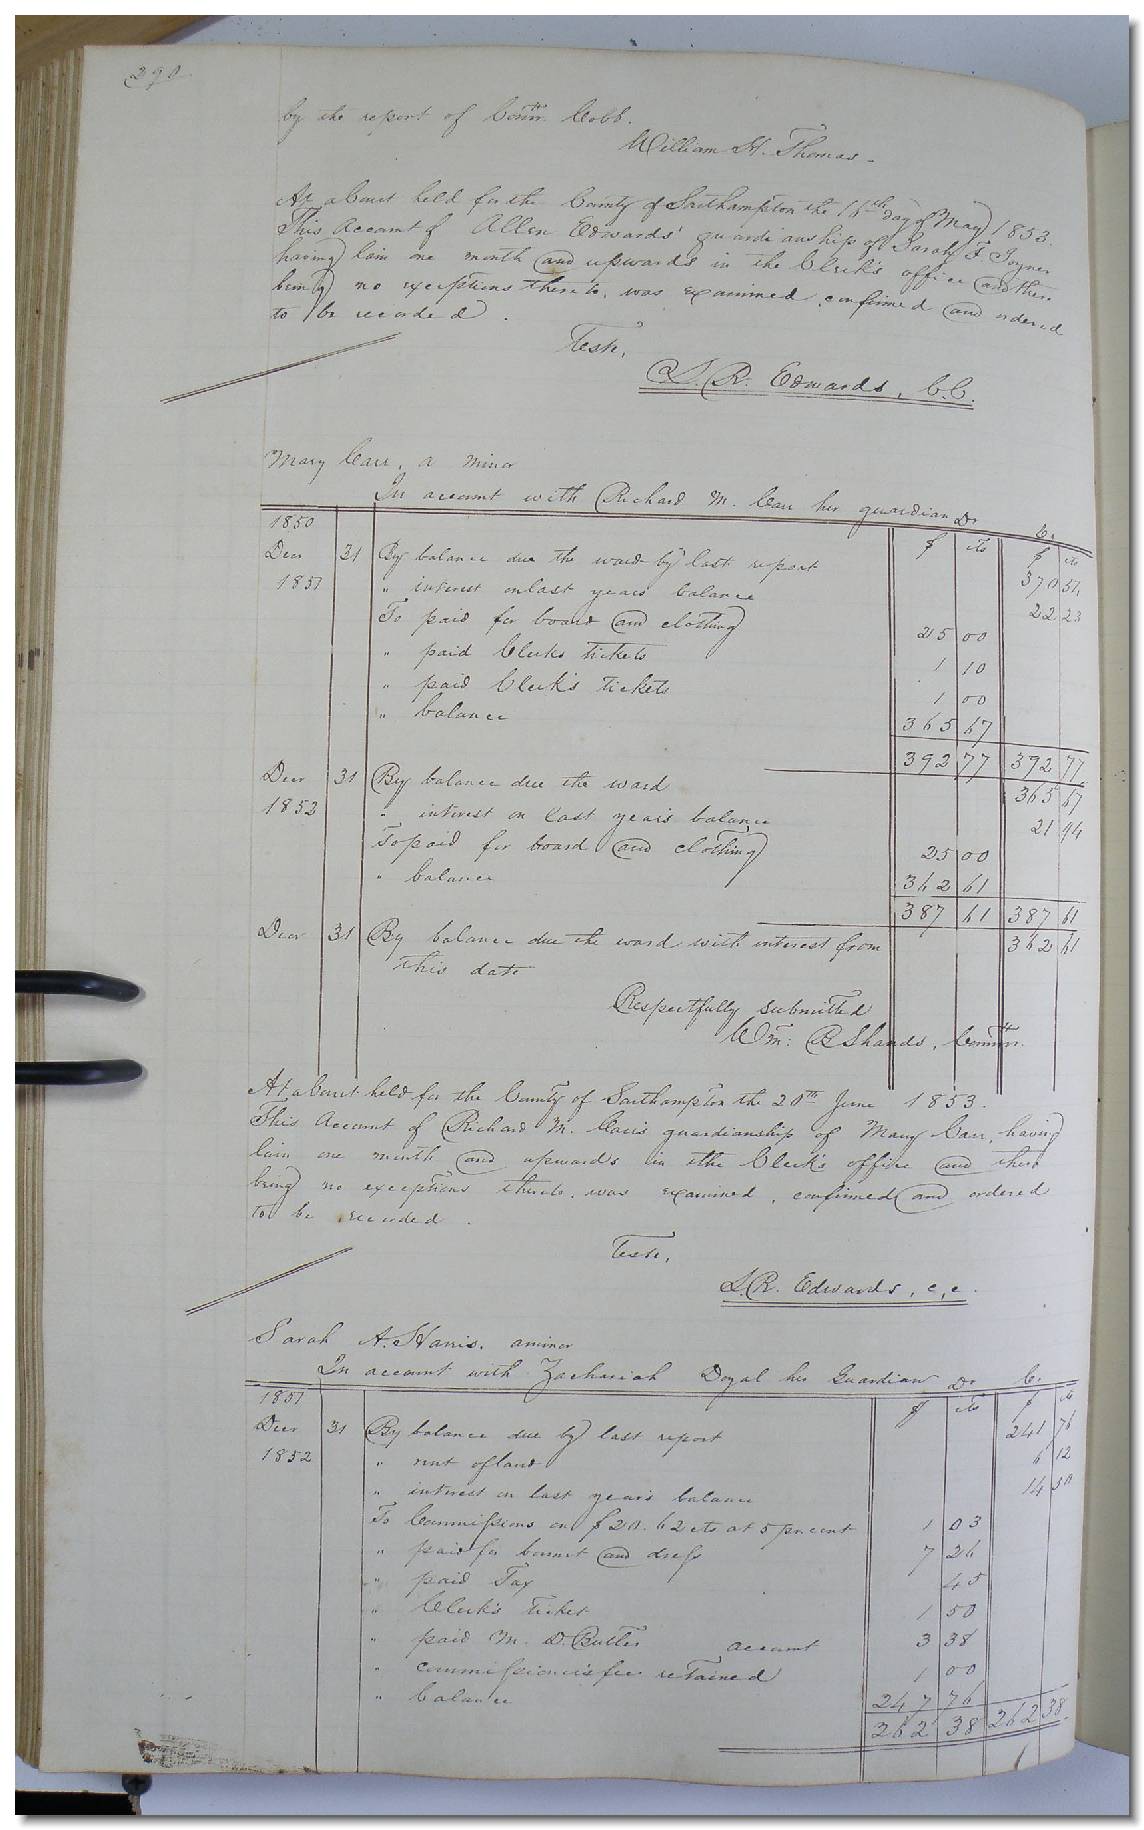 290
by the report of Commr. Cobb.
William H. Thomas.
At a Court held for the County of Southampton the 16th day of May 1853.
This Account of Allen Edwards' guardianship of Sarah F. Joyner
having lain one month and upwards in the Clerk's office and there
being no exceptions thereto, was examined, confirmed and ordered
to be recorded.
Teste,
L. R. Edwards, C.C.
Mary Carr, a minor
In account with Richard M. Carr her guardian Dr Cr
1850 $ cts $ cts
Decr 31 By balance due the ward by last report 370 54
1851 " interest on last years balance 22 23
To paid for board and clothing 25 00
" paid Clerks tickets 1 10
" paid Clerk's tickets 1 00
" balance 365 67
392 77 392 77
Decr 31 By balance due the ward 365 67
1852 " interest on last year's balance 21 94
To paid for board and clothing 25 00
" balance 362 61
387 61 387 61
Decr 31 By balance due the ward with interest from 362 61
this date
Respectfully submitted
Wm: B Shands, Commr.
At a Court held for the County of Southampton the 20th June 1853.
This Account of Richard M. Carr's guardianship of Mary Carr, having
lain one month and upwards in the Clerk's office and there
being no exceptions thereto, was examined, confirmed and ordered
to be recorded.
Teste,
L. R. Edwards, c.c.
Sarah A. Harris, a minor
In account with Zachariah Doyal her Guardian Dr Cr
1851 $ cts $ cts
Decr 31 By balance due by last report 241 76
1852 " rent of land 6 12
" interest on last year's balance 14 50
To Commissions on $20.62 cts at 5 pr cent 1 03
" paid for bonnet and dress 7 26
" paid Tax 45
" Clerk's Ticket 1 50
" paid M. D. Butler account 3 38
" commissioner's fee retained 1 00
" balance 247 76
262 38 262 38